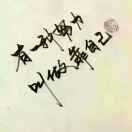 有一种努力
叫做靠自己